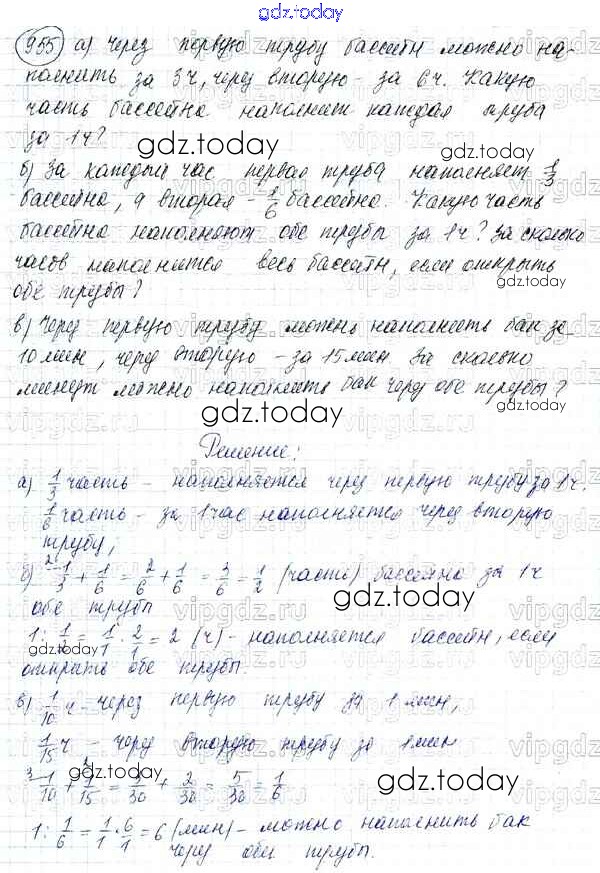 gdz.today
955 а) Через первую трубу бассейн можно на-
полнить за 3ч, через вторую - за 6ч. Какую
часть бассейна наполнит каждая труба
за 1ч?
gdz.today
б) За каждый час первая труба наполняет 1/3
бассейна, а вторая - 1/6 бассейна. Какую часть
бассейна наполняют обе трубы за 1ч? За сколько
часов наполнится весь бассейн, если открыть
обе трубы?
gdz.today
gdz.today
в) Через первую трубу можно наполнить бак за
10 мин, через вторую - за 15 мин За сколько
минут можно наполнить бак через обе трубы?
gdz.today
gdz.today
Решение:
а) 1/3 часть - наполняется через первую трубу за 1ч.
1/6 часть - за 1 час наполняется через вторую
трубу;
gdz.today
б) 1/3 + 1/6 = 2/6 + 1/6 = 3/6 = 1/2 (часть) бассейна за 1ч
обе трубы
gdz.today
1 : 1/2 = 1/1 · 2/1 = 2 (ч) - наполняется бассейн, если
открыть обе трубы.
gdz.today
в) 1/10 ч - через первую трубу за 1 мин,
1/15 ч - через вторую трубу за 1 мин
1/10 + 1/15 = 3/30 + 2/30 = 5/30 = 1/6
gdz.today
1 : 1/6 = 1/1 · 6/1 = 6 (мин) - можно наполнить бак
через обе трубы.